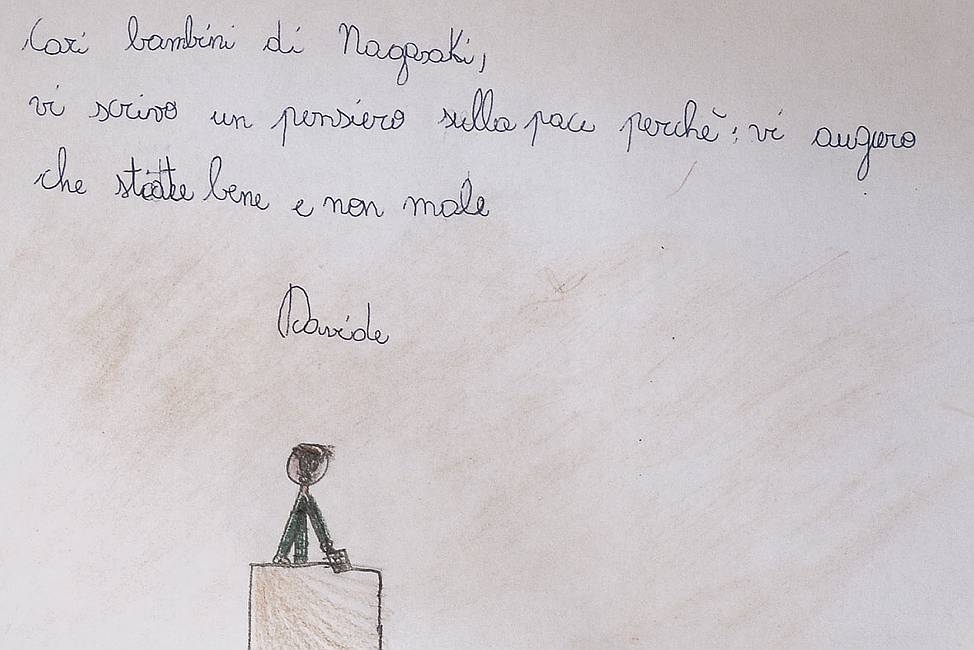 Cari bambini di Nagasaki,
vi scrivo un pensiero sulla pace perchè: vi auguro
che state bene e non male
Davide